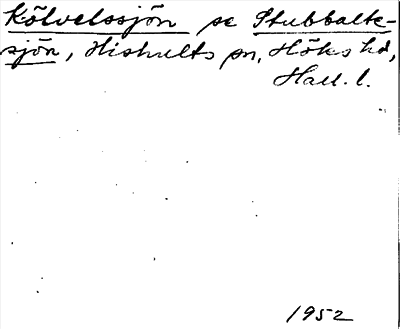 Kölvelssjön se Stubbalk-
sjön, Hishults sn, Höks hd,
Hall. l.
1952